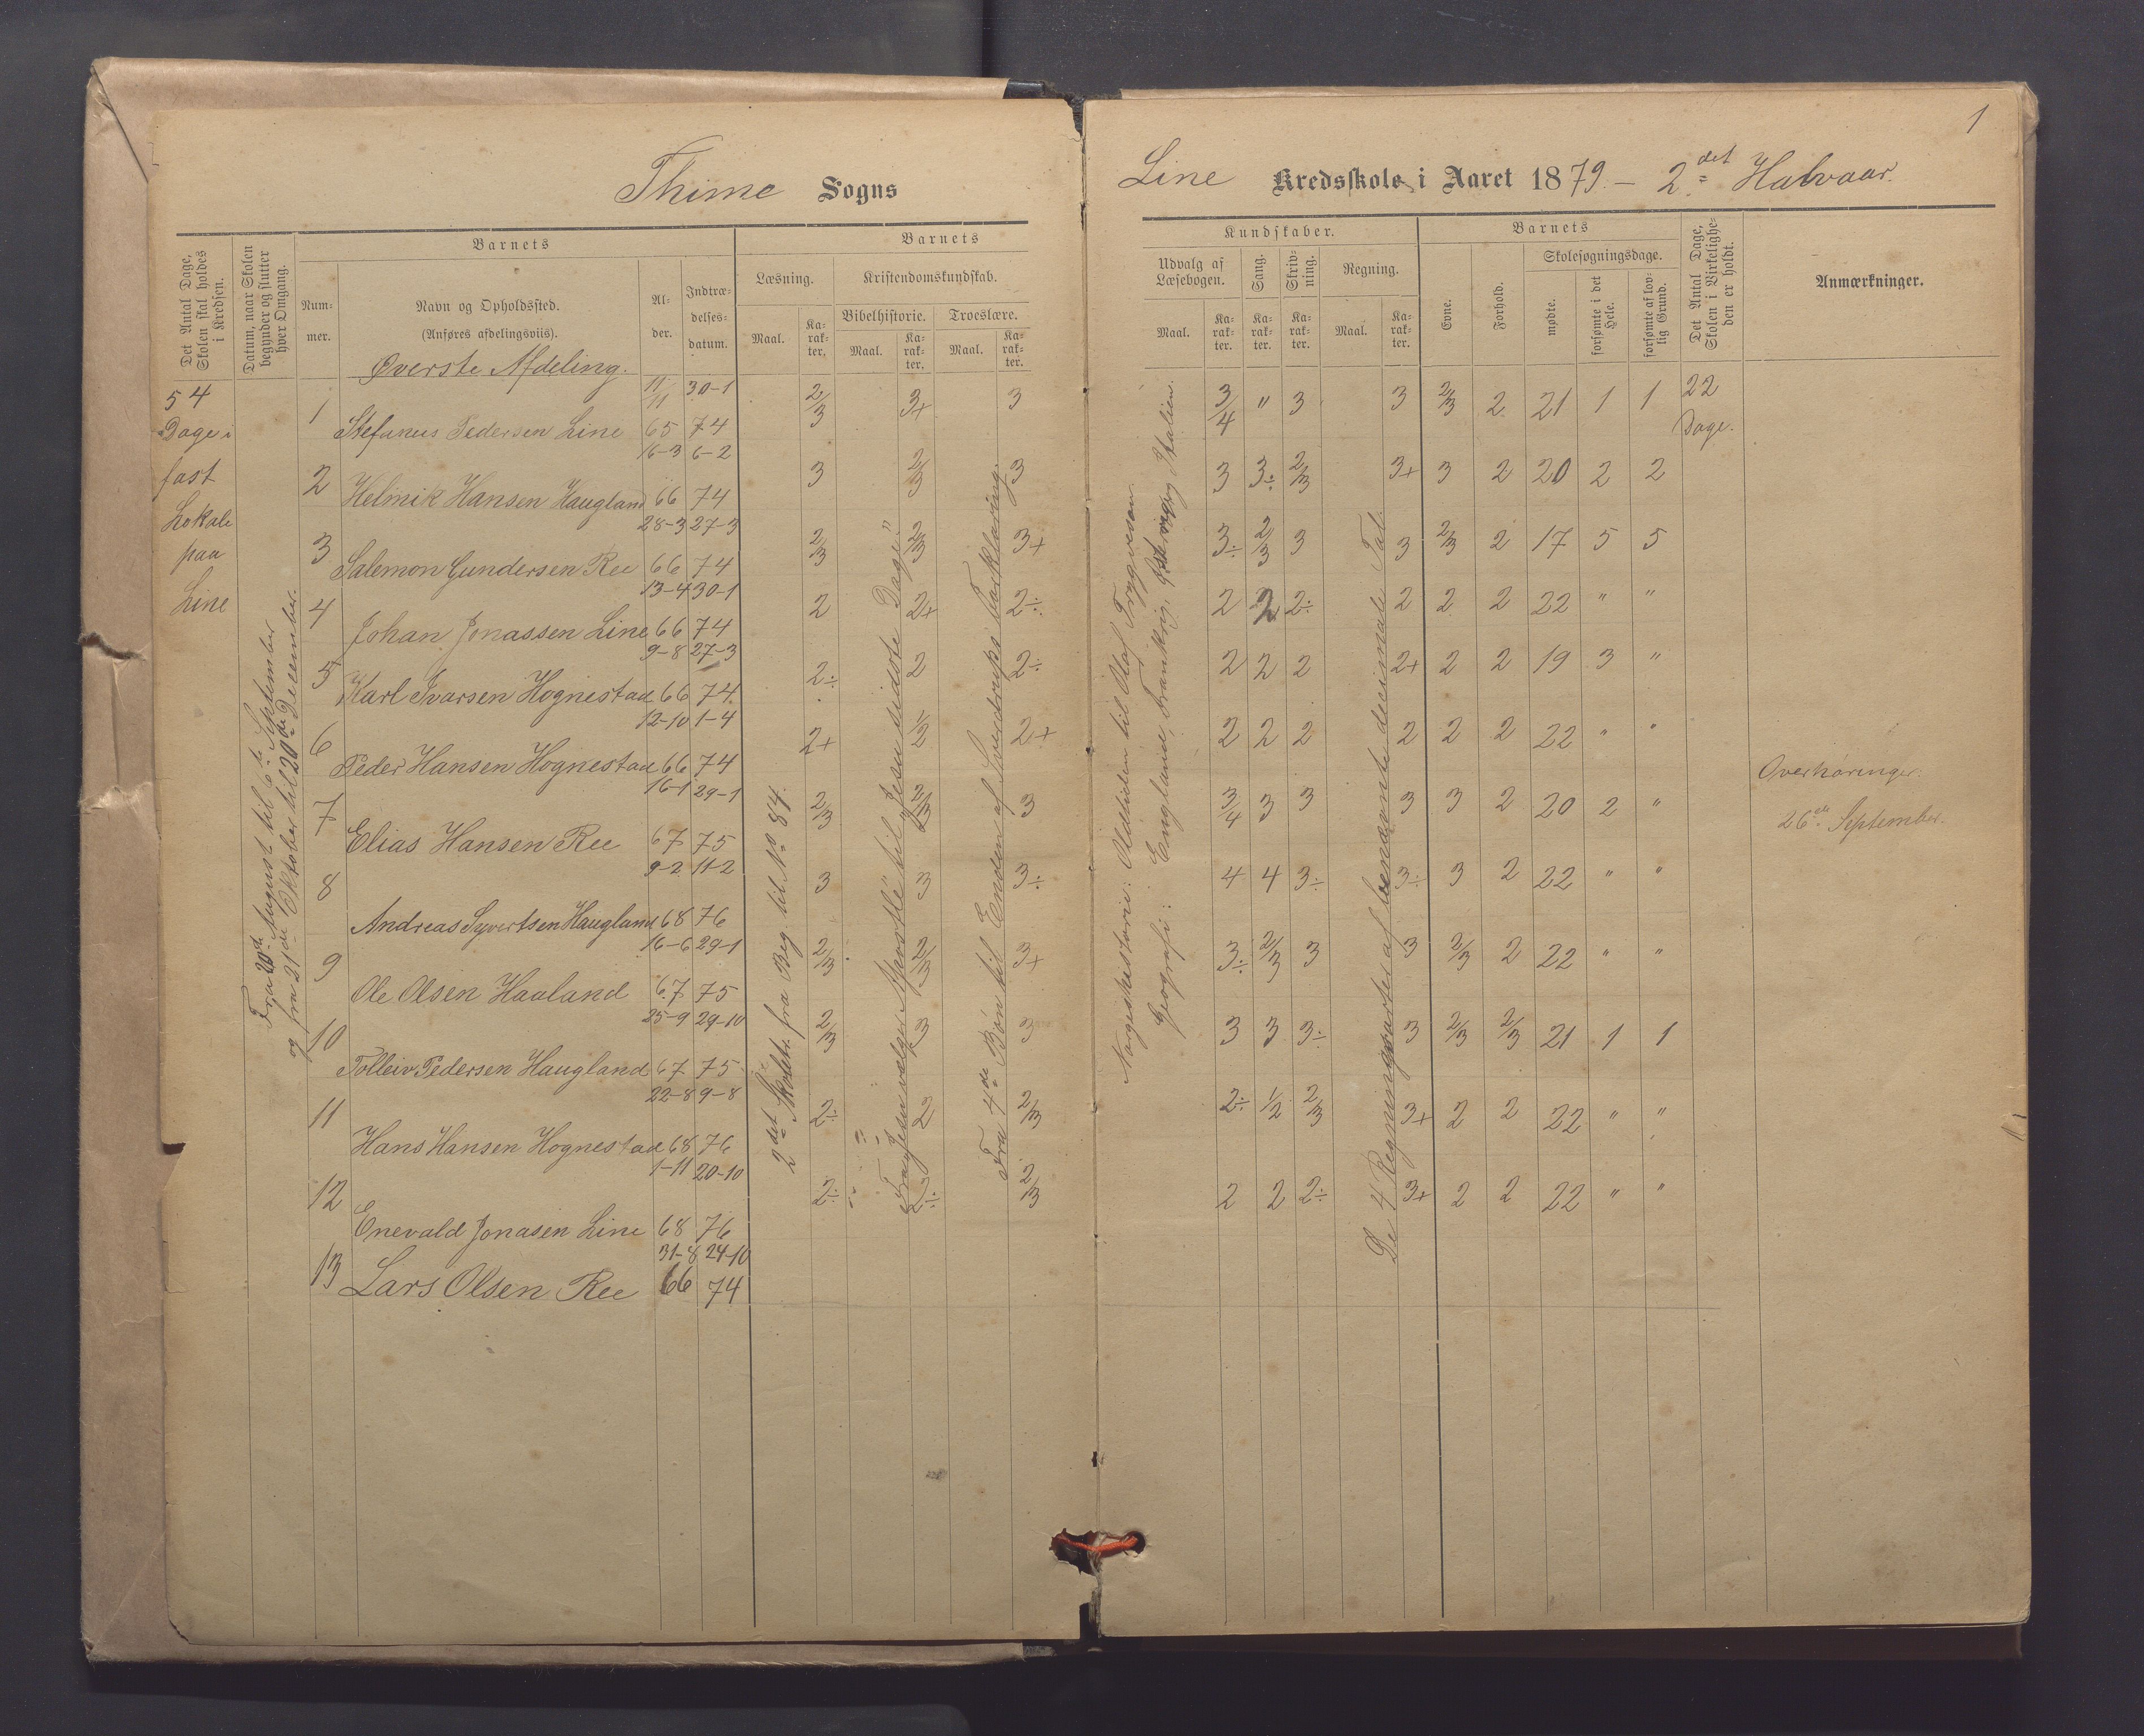 1
Thime Sogns
Line Kredsskole i Aaret 1879 – 2det Halvaar.
Det Antal Dage, Skolen skal holdes i Kredsen.
Datum, naar Skolen begynder og slutter hver Omgang.
Barnets
Barnets
Kundskaber.
Barnets
Nummer.
Navn og Opholdssted.
(Anføres afdelingsviis).
Alder.
Indtrædelsesdatum.
Læsning.
Kristendomskundskab.
Bibelhistorie.
Troeslære.
Maal.
Karakter.
Maal.
Karakter.
Maal.
Karakter.
Udvalg af Læsebogen.
Sang.
Skrivning.
Regning.
Maal.
Karakter.
Karakter.
Karakter.
Maal.
Karakter.
Evne.
Forhold.
Skolesøgningsdage.
mødte.
forsømte i det Hele.
forsømte af lovlig Grund.
Det Antal Dage, Skolen i Virkeligheden er holdt.
Anmærkninger.
Øverste Afdeling.
54
Dage i
fast
Lokale
paa
Line
Fra 20de August til 6te September
og fra 21de Oktober til 20de December.
1 Stefanus Pedersen Line 11/11 65 30-1 74 2/3 3+ 3 3/4 " 3 3 2/3 2 21 1 1 22 Dage.
2 Helmik Hansen Haugland 16-3 66 6-2 74 3 2/3 3 3 3÷ 2/3 3+ 3 2 20 2 2
3 Salemon Gundersen Ree 28-3 66 27-3 74 2/3 2/3 3+ 3÷ 2/3 3 3 2/3 2 17 5 5
4 Johan Jonassen Line 13-4 66 30-1 74 2 2+ 2÷ 2 2 2÷ 2 2 2 22 " "
5 Karl Ivarsen Hognestad 9-8 66 27-3 74 2÷ 2 2÷ 2 2 2 2+ 2 2 19 3 "
6 Peder Hansen Hognestad 12-10 66 1-4 74 2+ 1/2 2+ 2 2 2 2 2 2 22 " "
7 Elias Hansen Ree 16-1 67 29-1 75 2/3 2/3 3 3/4 3 3 3 3 2 20 2 "
8 Andreas Syvertsen Haugland 9-2 68 11-2 76 3 3 3÷ 4 4 3÷ 3÷ 3 2 22 " "
9 Ole Olsen Haaland 16-6 67 29-1 75 2/3 2/3 3+ 3÷ 2/3 3 3 2/3 2 22 " "
10 Tolleiv Pedersen Haugland 25-9 67 29-10 75 2/3 3 3 3 3 3÷ 3 2/3 2/3 21 1 1
11 Hans Hansen Hognestad 22-8 68 9-8 76 2÷ 2 2/3 2÷ 1/2 2/3 3+ 2 2 22 " "
12 Enevald Jonasen Line 1-11 68 20-10 76 2÷ 2÷ 2/3 2 2 2÷ 3+ 2 2 22 " "
13 Lars Olsen Ree 31-8 66 24-10 74
2det Skoletr. fra Beg. til No 84.
Fra „Jesu vælger Apostle" til „Jesu sidste Dage"
Fra 4de Bøn til Enden af Sverdrups Forklaring.
Norgeshistorie: Oldtiden til Olaf Trygvesøn.
Geografi: England, Frankrig, og Italien.
De 4 Regningsarter af benævnte decimale Tal.
Overhøringer:
26de September.